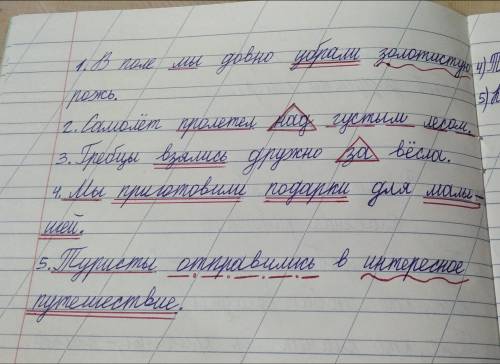 1. В поле мы довно убрали золотистую
рожь.
2. Самолёт пролетел над густым лесом.
3. Гребцы взялись дружно за вёсла.
4. Мы приготовили подарки для малы-
шей.
5. Туристы отправились в интересное
путешествие.
4) Т
5) А